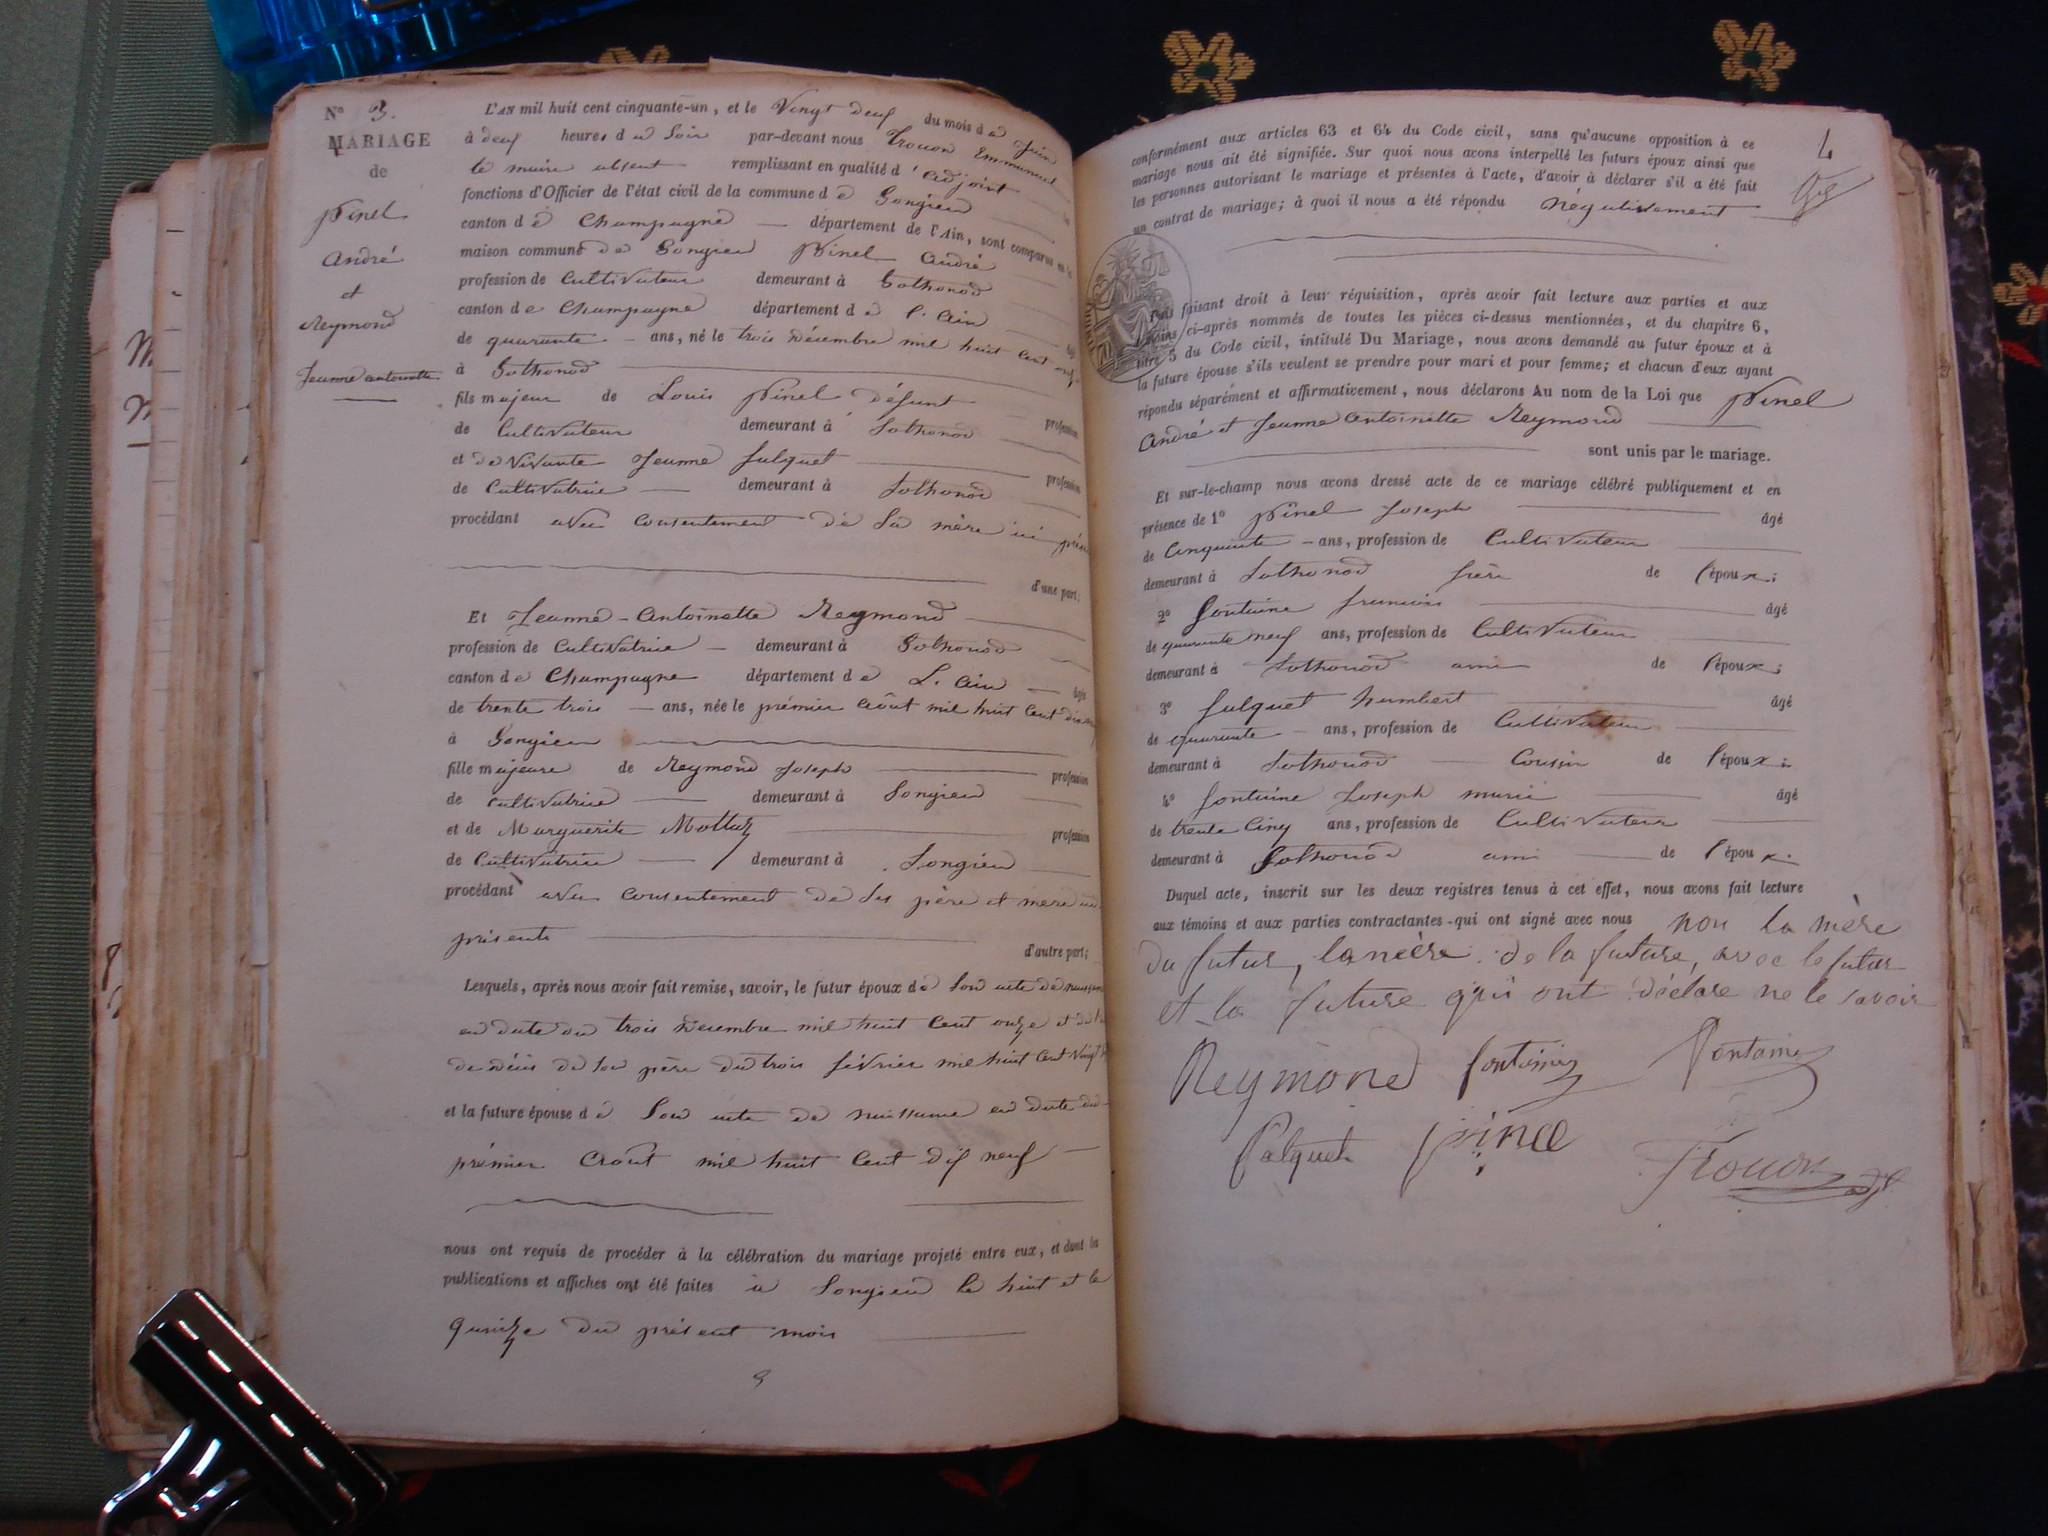 N° 3.
MARIAGE
de
Pinel
André
et
Reymond
Jeanne antoinette
L'AN mil huit cent cinquante-un, et le Vingt deux du mois de Juin
à deux heures du Soir par-devant nous Trouon Emmanuel
le maire absent remplissant en qualité d'adjoint les
fonctions d'Officier de l'état civil de la commune de Songieu
canton de Champagne département de l'Ain, sont comparus en la
maison commune de Songieu Pinel André
profession de Cultivateur demeurant à Sothonod
canton de Champagne département de l'Ain âgé
de quarante ans, né le trois Décembre mil huit cent onze
à Sothonod
fils majeur de Louis Pinel Défunt profession
de Cultivateur demeurant à Sothonod
et de Vivante Jeanne fulquet profession
de Cultivatrice demeurant à Sothonod
procédant avec consentement de Sa mère ici
d'une part;
Et Jeanne-antoinette Reymond
profession de Cultivatrice demeurant à Sothonod
canton de Champagne département de L'Ain âgée
de trente trois ans, née le prémier Août mil huit Cent
à Songieu
fille majeure de Reymond Joseph profession
de Cultivatrice demeurant à Songieu
et de Marguerite Mollaz profession
de Cultivatrice demeurant à Songieu
procédant avec consentement de Ses père et mere ici
présents d'autre part;
Lesquels, après nous avoir fait remise, savoir, le futur époux de Son acte de naissance
en date du trois Décembre mil huit Cent onze et de
de décès de son père du trois février mil huit Cent Vingt
et la future épouse de Son acte de naissance en date du
prémier Août mil huit Cent dix neuf
nous ont requis de procéder à la célébration du mariage projeté entre eux, et dont les
publications et affiches ont été faites à Songieu le huit et le
quinze du présent mois
4
conformément aux articles 63 et 64 du Code civil, sans qu'aucune opposition à ce
mariage nous ait été signifiée. Sur quoi nous avons interpellé les futurs époux ainsi que
les personnes autorisant le mariage et présentes à l'acte, d'avoir à déclarer s'il a été fait
un contrat de mariage; à quoi il nous a été répondu négativement
faisant droit à leur réquisition, après avoir fait lecture aux parties et aux
témoins ci-après nommés de toutes les pièces ci-dessus mentionnées, et du chapitre 6,
titre 5 du Code civil, intitulé Du Mariage, nous avons demandé au futur époux et à
la future épouse s'ils veulent se prendre pour mari et pour femme; et chacun d'eux ayant
répondu séparément et affirmativement, nous déclarons Au nom de la Loi que Pinel
André et Jeanne antoinette Reymond
sont unis par le mariage.
Et sur-le-champ nous avons dressé acte de ce mariage célébré publiquement et en
présence de 1° Pinel Joseph âgé
de Cinquante ans, profession de Cultivateur
demeurant à Sothonod frère de l'époux;
2° fontaine francois âgé
de quarante neuf ans, profession de Cultivateur
demeurant à Sothonod ami de l'époux;
3° fulquet humbert âgé
de quarante ans, profession de Cultivateur
demeurant à Sothonod Cousin de l'époux;
4° fontaine Joseph marie âgé
de trente Cinq ans, profession de Cultivateur
demeurant à Sothonod ami de l'époux.
Duquel acte, inscrit sur les deux registres tenus à cet effet, nous avons fait lecture
aux témoins et aux parties contractantes qui ont signé avec nous non la mère
du futur, la mère de la future, avec le futur
et la future qui ont déclare ne le savoir
Reymond fontaine fontaine
falquet pinel Trouon adj.